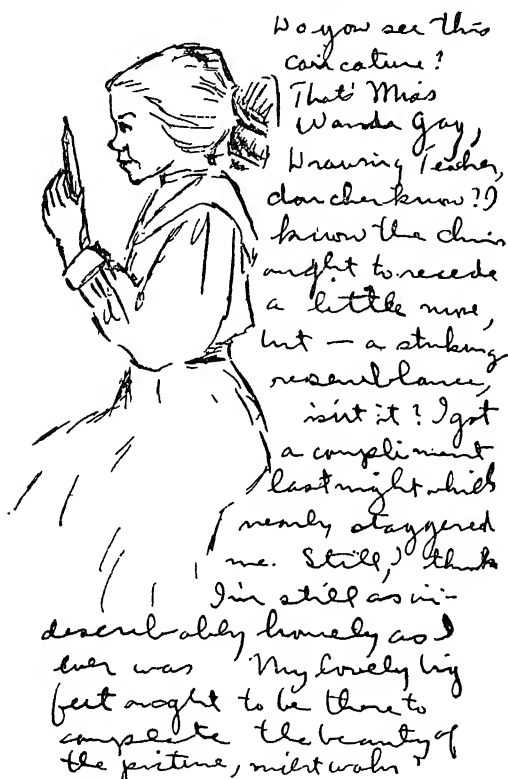 Do you see this
caricature?
That's Miss
Wanda Gág,
Drawing Teacher,
doncherknow? I
know the chin
ought to recede
a little more,
but — a striking
resemblance,
isn't it? I got
a compliment
last night which
nearly staggered
me. Still, I think
I'm still as in-
describably homely as I
ever was My lovely big
feet ought to be there to
complete the beauty of
the picture, nicht wahr?